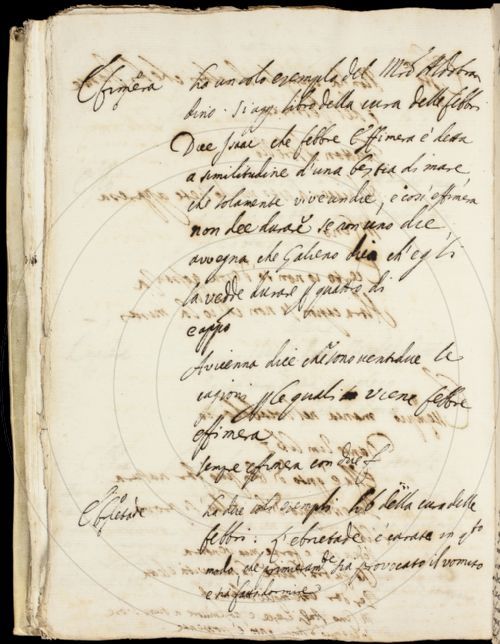 Effimera ha un solo esempio del Mro Aldobran
dino. Si agg. libro della cura delle febbri
Dice Isaac che febbre Effimera è detta
a similitudine d'una bestia di mare
che solamente vive un die, e così effimera
non dee durare se non uno die,
avvegna che Galieno dica ch'egli
la vedde durare quattro dì
e appo
Avicenna dice che sono ventidue le
cagioni p le quali viene febbre
effimera
sempre effimera con due f
Ebrietade ha due esempli lib della cura delle
febbri: L'ebrietade è curata in qto
modo, che primieramte sia provocato il vomito
e sia fatto dormire